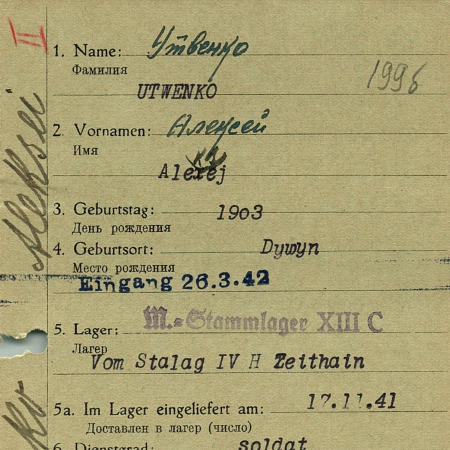 II
1. Name: Утвенко
Фамилия
UTWENKO
1996
2. Vornamen: Алексей
Имя
Alexej
3. Geburtstag: 1903
День рождения
4. Geburtsort: Dywyn
Место рождения
Eingang 26.3.42
5. Lager: M.-Stammlager XIII C
Лагерь
Vom Stalag IV H Zeithain
5a. Im Lager eingeliefert am: 17.11.41
Доставлен в лагерь (число)
6. Dienstgrad: soldat
Aleksei
ko